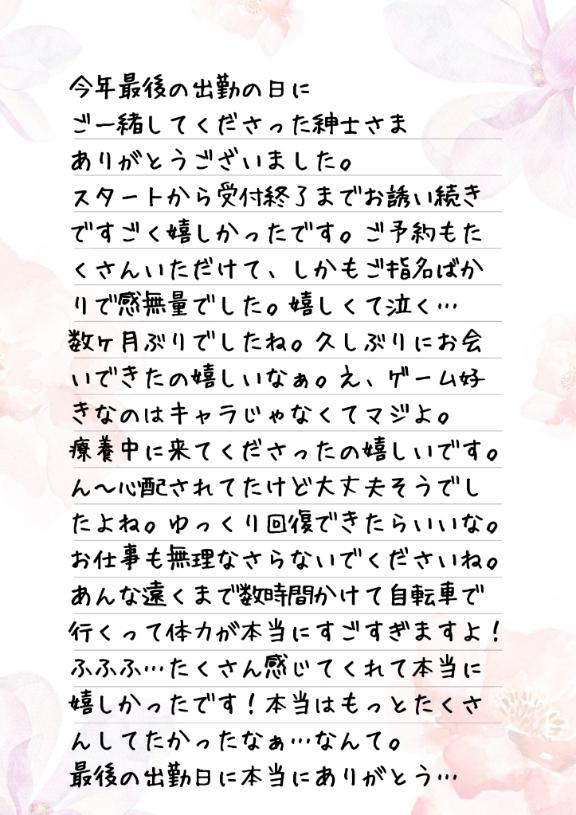 今年最後の出勤の日に
ご一緒してくださった紳士さま
ありがとうございました。
スタートから受付終了までお誘い続き
ですごく嬉しかったです。ご予約もた
くさんいただけて、しかもご指名ばか
りで感無量でした。嬉しくて泣く…
数ヶ月ぶりでしたね。久しぶりにお会
いできたの嬉しいなぁ。え、ゲーム好
きなのはキャラじゃなくてマジよ。
療養中に来てくださったの嬉しいです。
ん〜心配されてたけど大丈夫そうでし
たよね。ゆっくり回復できたらいいな。
お仕事も無理なさらないでくださいね。
あんな遠くまで数時間かけて自転車で
行くって体力が本当にすごすぎますよ！
ふふふ…たくさん感じてくれて本当に
嬉しかったです！本当はもっとたくさ
んしてたかったなぁ…なんて。
最後の出勤日に本当にありがとう…